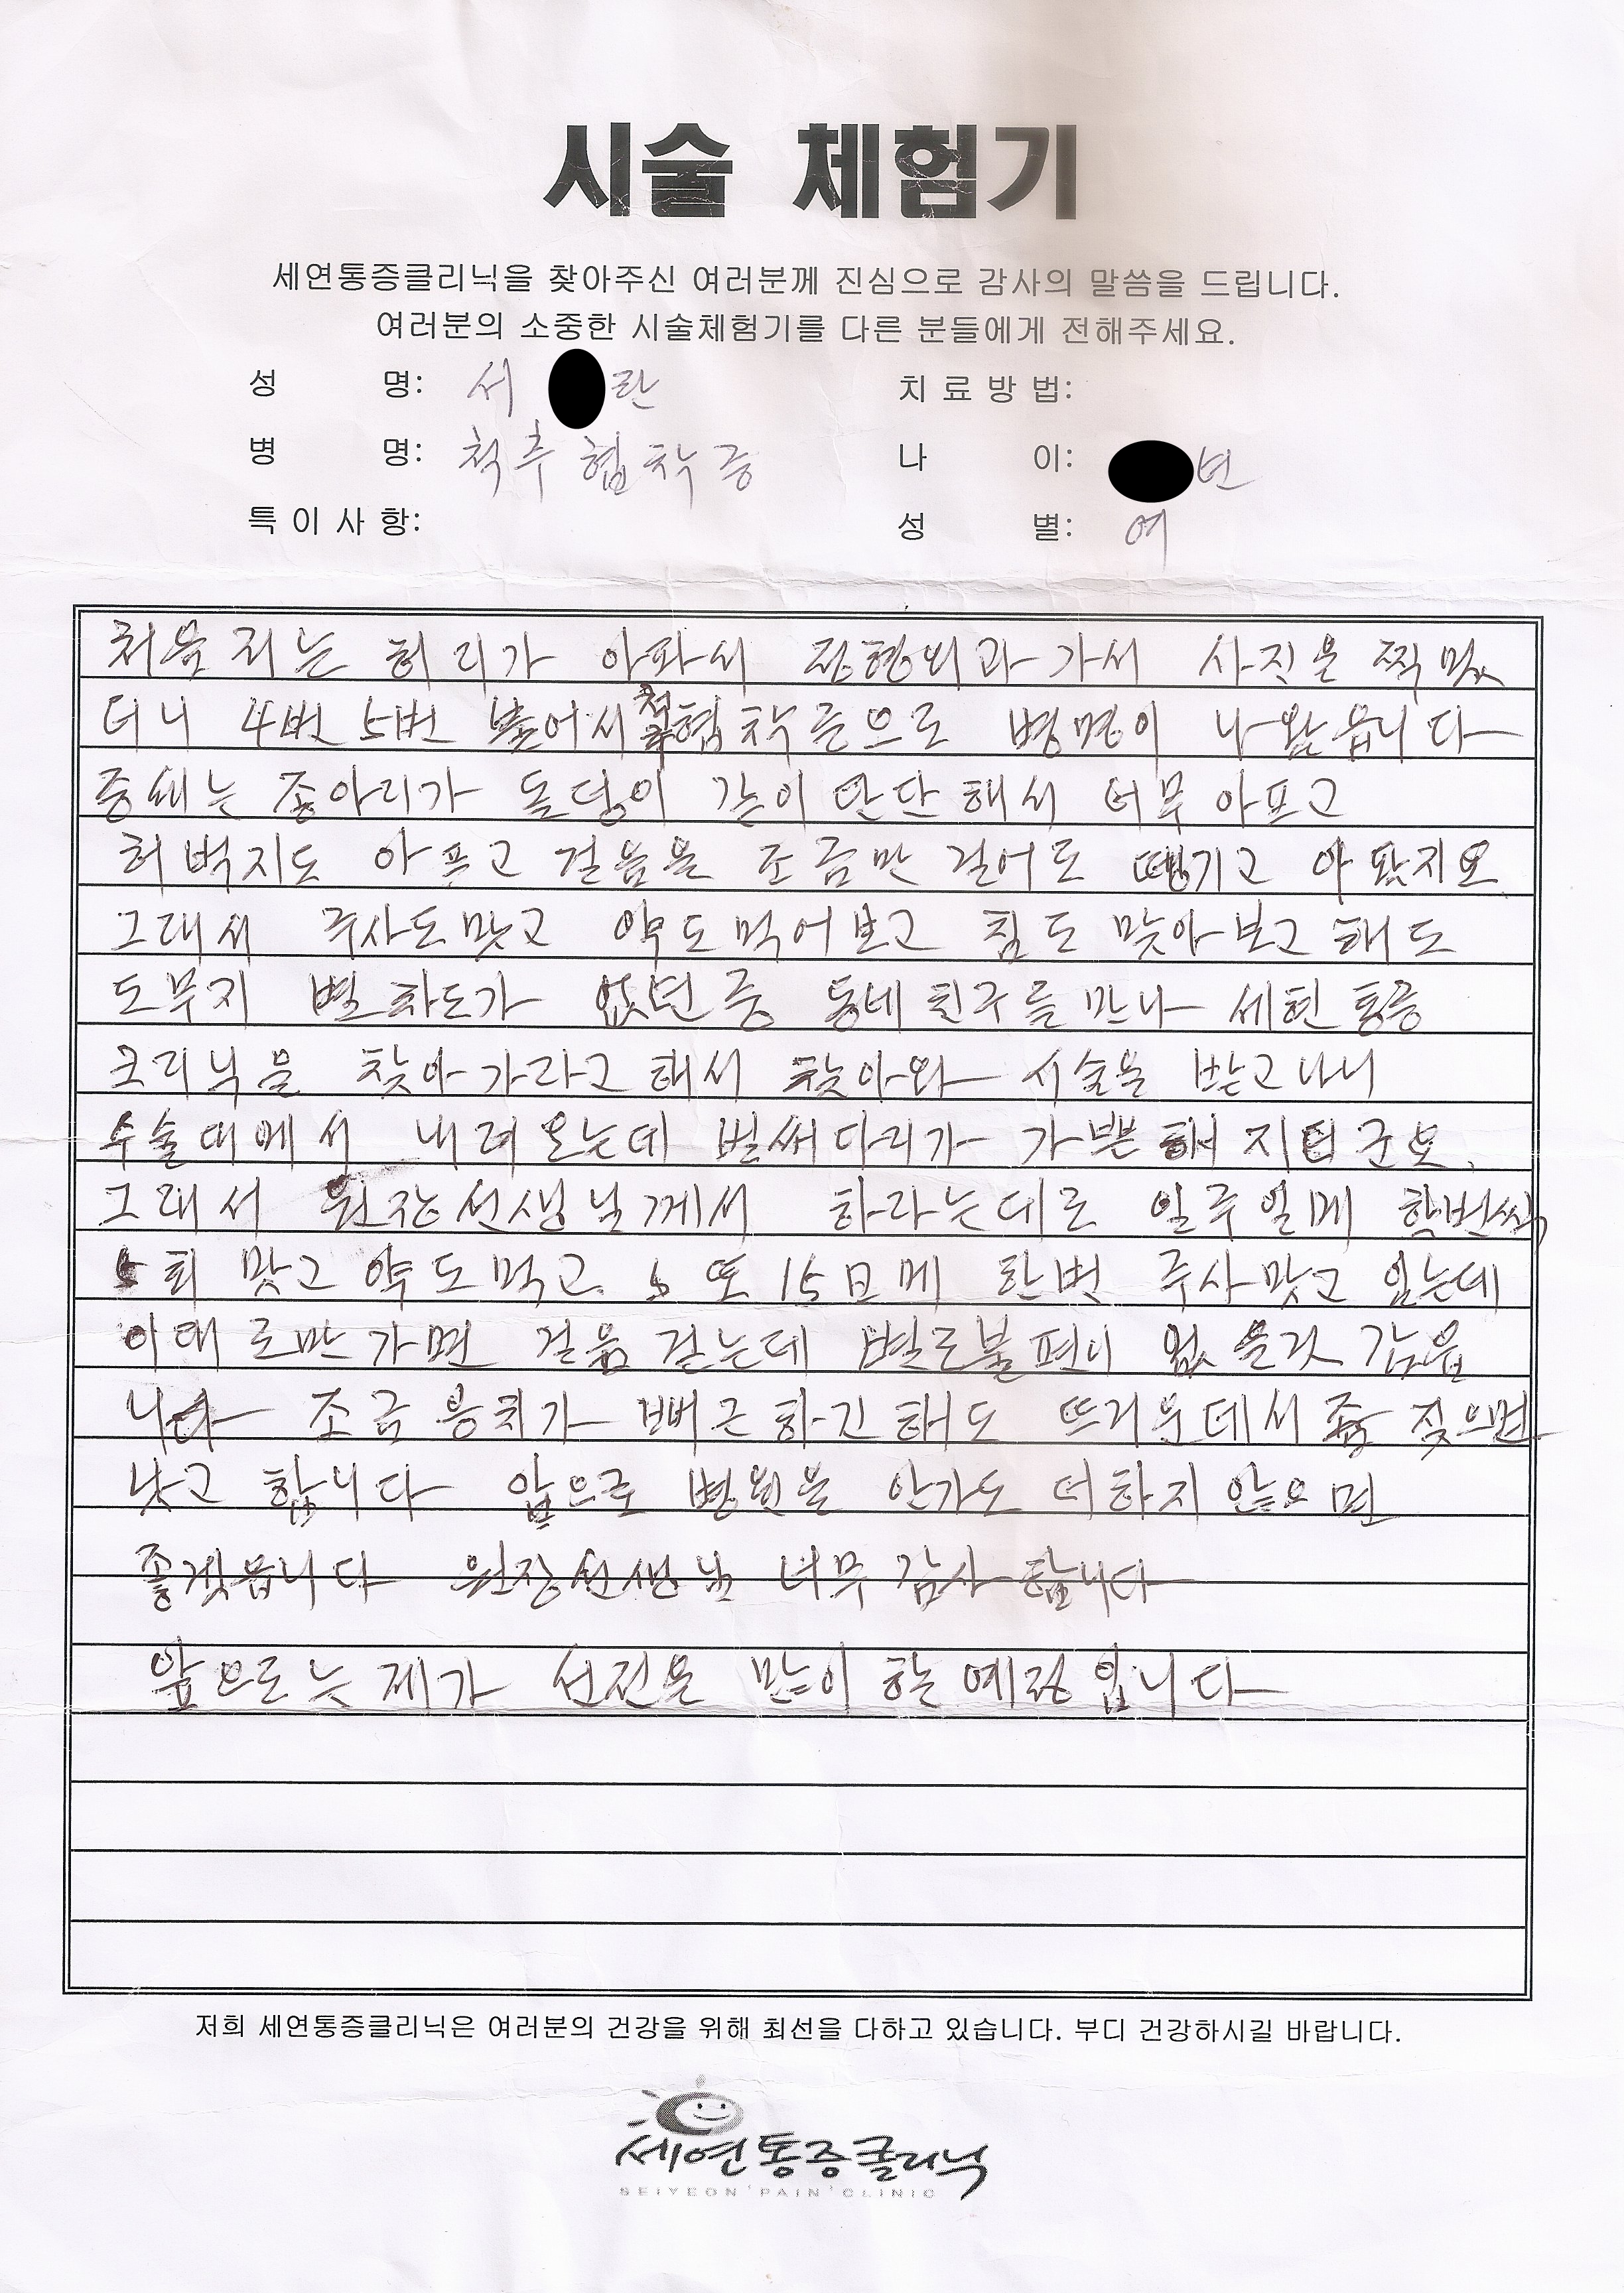 시술 체험기
세연통증클리닉을 찾아주신 여러분께 진심으로 감사의 말씀을 드립니다.
여러분의 소중한 시술체험기를 다른 분들에게 전해주세요.
성 명: 서 란 치료방법:
병 명: 척추협착증 나 이: 번
특이사항: 성 별: 여
처음 저는 허리가 아파서 정형외과 가서 사진을 찍었
더니 4번 5번 붙어서 척추협착증으로 병명이 나왔읍니다
증세는 종아리가 돌덩이 같이 단단해서 너무 아프고
허벅지도 아프고 걸음을 조금만 걸어도 땡기고 아팠지요
그래서 주사도 맞고 약도 먹어보고 침도 맞아보고 해도
도무지 별 차도가 없던 중 동네 친구를 만나 세현통증
크리닉을 찾아가라고 해서 찾아와 시술을 받고나니
수술대에서 내려오는데 벌써 다리가 가쁜해지더군요.
그래서 원장선생님께서 하라는데로 일주일에 한번씩
5회 맞고 약도 먹고. 또 15日에 한번 주사맞고 있는데
이대로만 가면 걸음 걷는데 별로 불편이 없을것 같읍
니다 조금 뭉치가 뻐근하긴 해도 뜨거운데서 좀 짖으면
낫고 합니다 앞으로 병원을 안가도 더하지 않으면
좋겠읍니다 원장선생님 너무 감사합니다
앞으로는 제가 선전을 많이 할 예정입니다
저희 세연통증클리닉은 여러분의 건강을 위해 최선을 다하고 있습니다. 부디 건강하시길 바랍니다.
세연통증클리닉
SEIYEON PAIN CLINIC